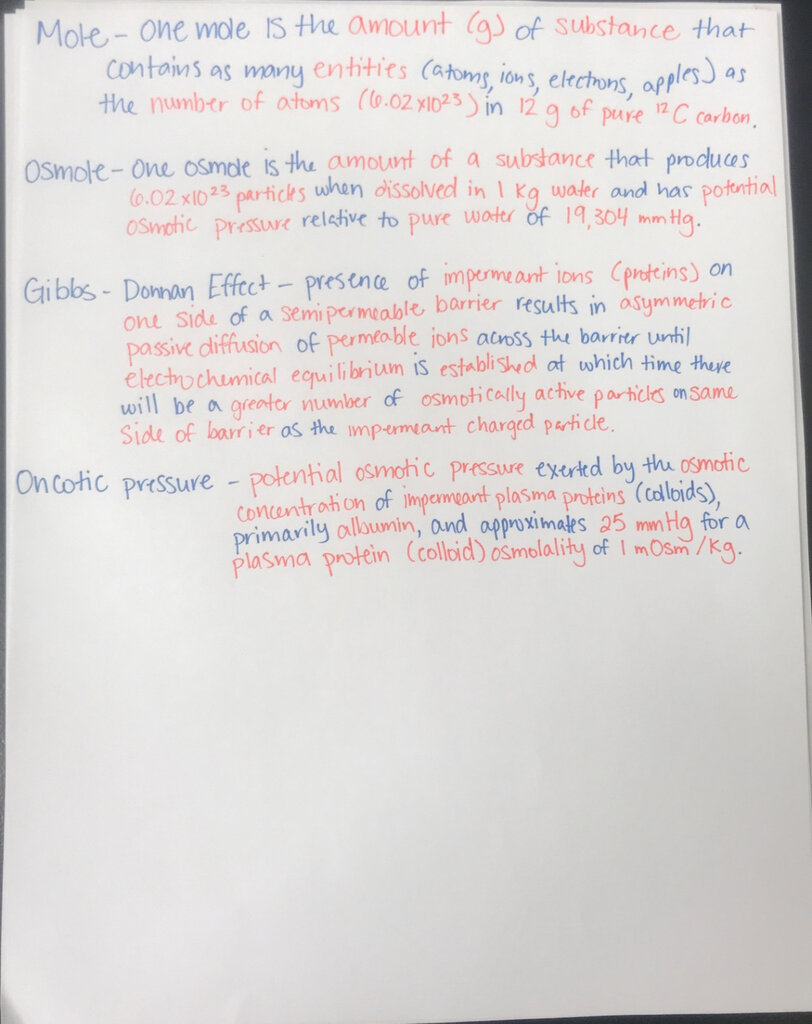 Mole - One mole is the amount (g) of substance that
contains as many entities (atoms, ions, electrons, apples) as
the number of atoms (6.02x10²³) in 12 g of pure ¹²C carbon.
Osmole - One osmole is the amount of a substance that produces
6.02x10²³ particles when dissolved in 1 Kg water and has potential
osmotic pressure relative to pure water of 19,304 mmHg.
Gibbs - Donnan Effect - presence of impermeant ions (proteins) on
one side of a semipermeable barrier results in asymmetric
passive diffusion of permeable ions across the barrier until
electrochemical equilibrium is established at which time there
will be a greater number of osmotically active particles on same
side of barrier as the impermeant charged particle.
Oncotic pressure - potential osmotic pressure exerted by the osmotic
concentration of impermeant plasma proteins (colloids),
primarily albumin, and approximates 25 mmHg for a
plasma protein (colloid) osmolality of 1 mOsm/Kg.